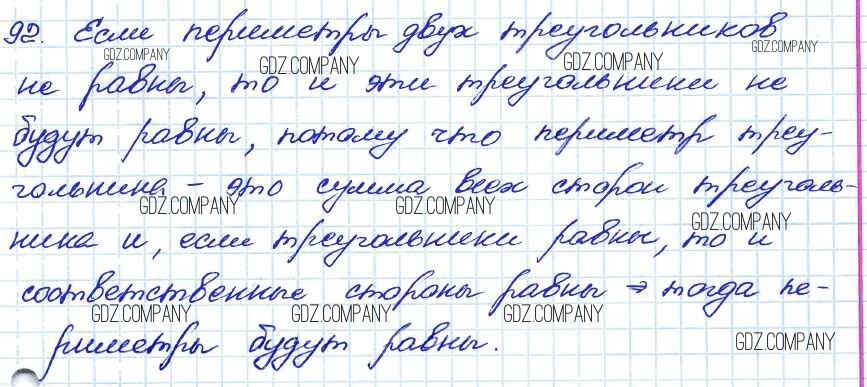 92. Если периметры двух треугольников
GDZ.COMPANY GDZ.COMPANY GDZ.COMPANY GDZ.COMPANY
не равны, то и эти треугольники не
будут равны, потому что периметр треу-
гольника – это сумма всех сторон треуголь-
GDZ.COMPANY GDZ.COMPANY GDZ.COMPANY
ника и, если треугольники равны, то и
соответственные стороны равны ⇒ тогда пе-
GDZ.COMPANY GDZ.COMPANY GDZ.COMPANY GDZ.COMPANY
риметры будут равны.